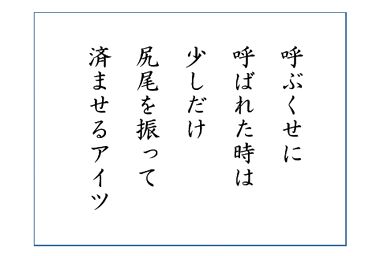 呼ぶくせに
呼ばれた時は
少しだけ
尻尾を振って
済ませるアイツ